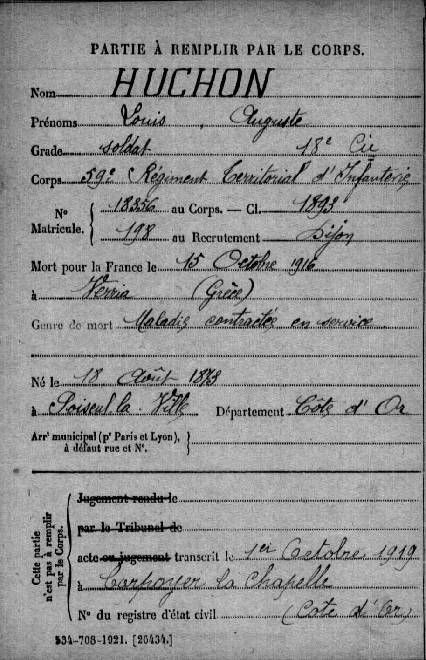 PARTIE À REMPLIR PAR LE CORPS.
Nom HUCHON
Prénoms Louis, Auguste
Grade soldat 18e Cie
Corps 59e Régiment Territorial d'Infanterie
No Matricule. { 18256 au Corps. — Cl. 1893
198 au Recrutement Dijon
Mort pour la France le 15 Octobre 1916
à Verria (Grèce)
Genre de mort Maladie contractée en service
Né le 18 Août 1873
à Poiseul la Ville Département Côte d'Or
Arrt municipal (pr Paris et Lyon), }
à défaut rue et No.
Cette partie n'est pas à remplir par le Corps.
Jugement rendu le
par le Tribunal de
acte ou jugement transcrit le 1er Octobre 1919
à la Chapelle
No du registre d'état civil (Cote d'Or)
534-708-1921. [26434.]